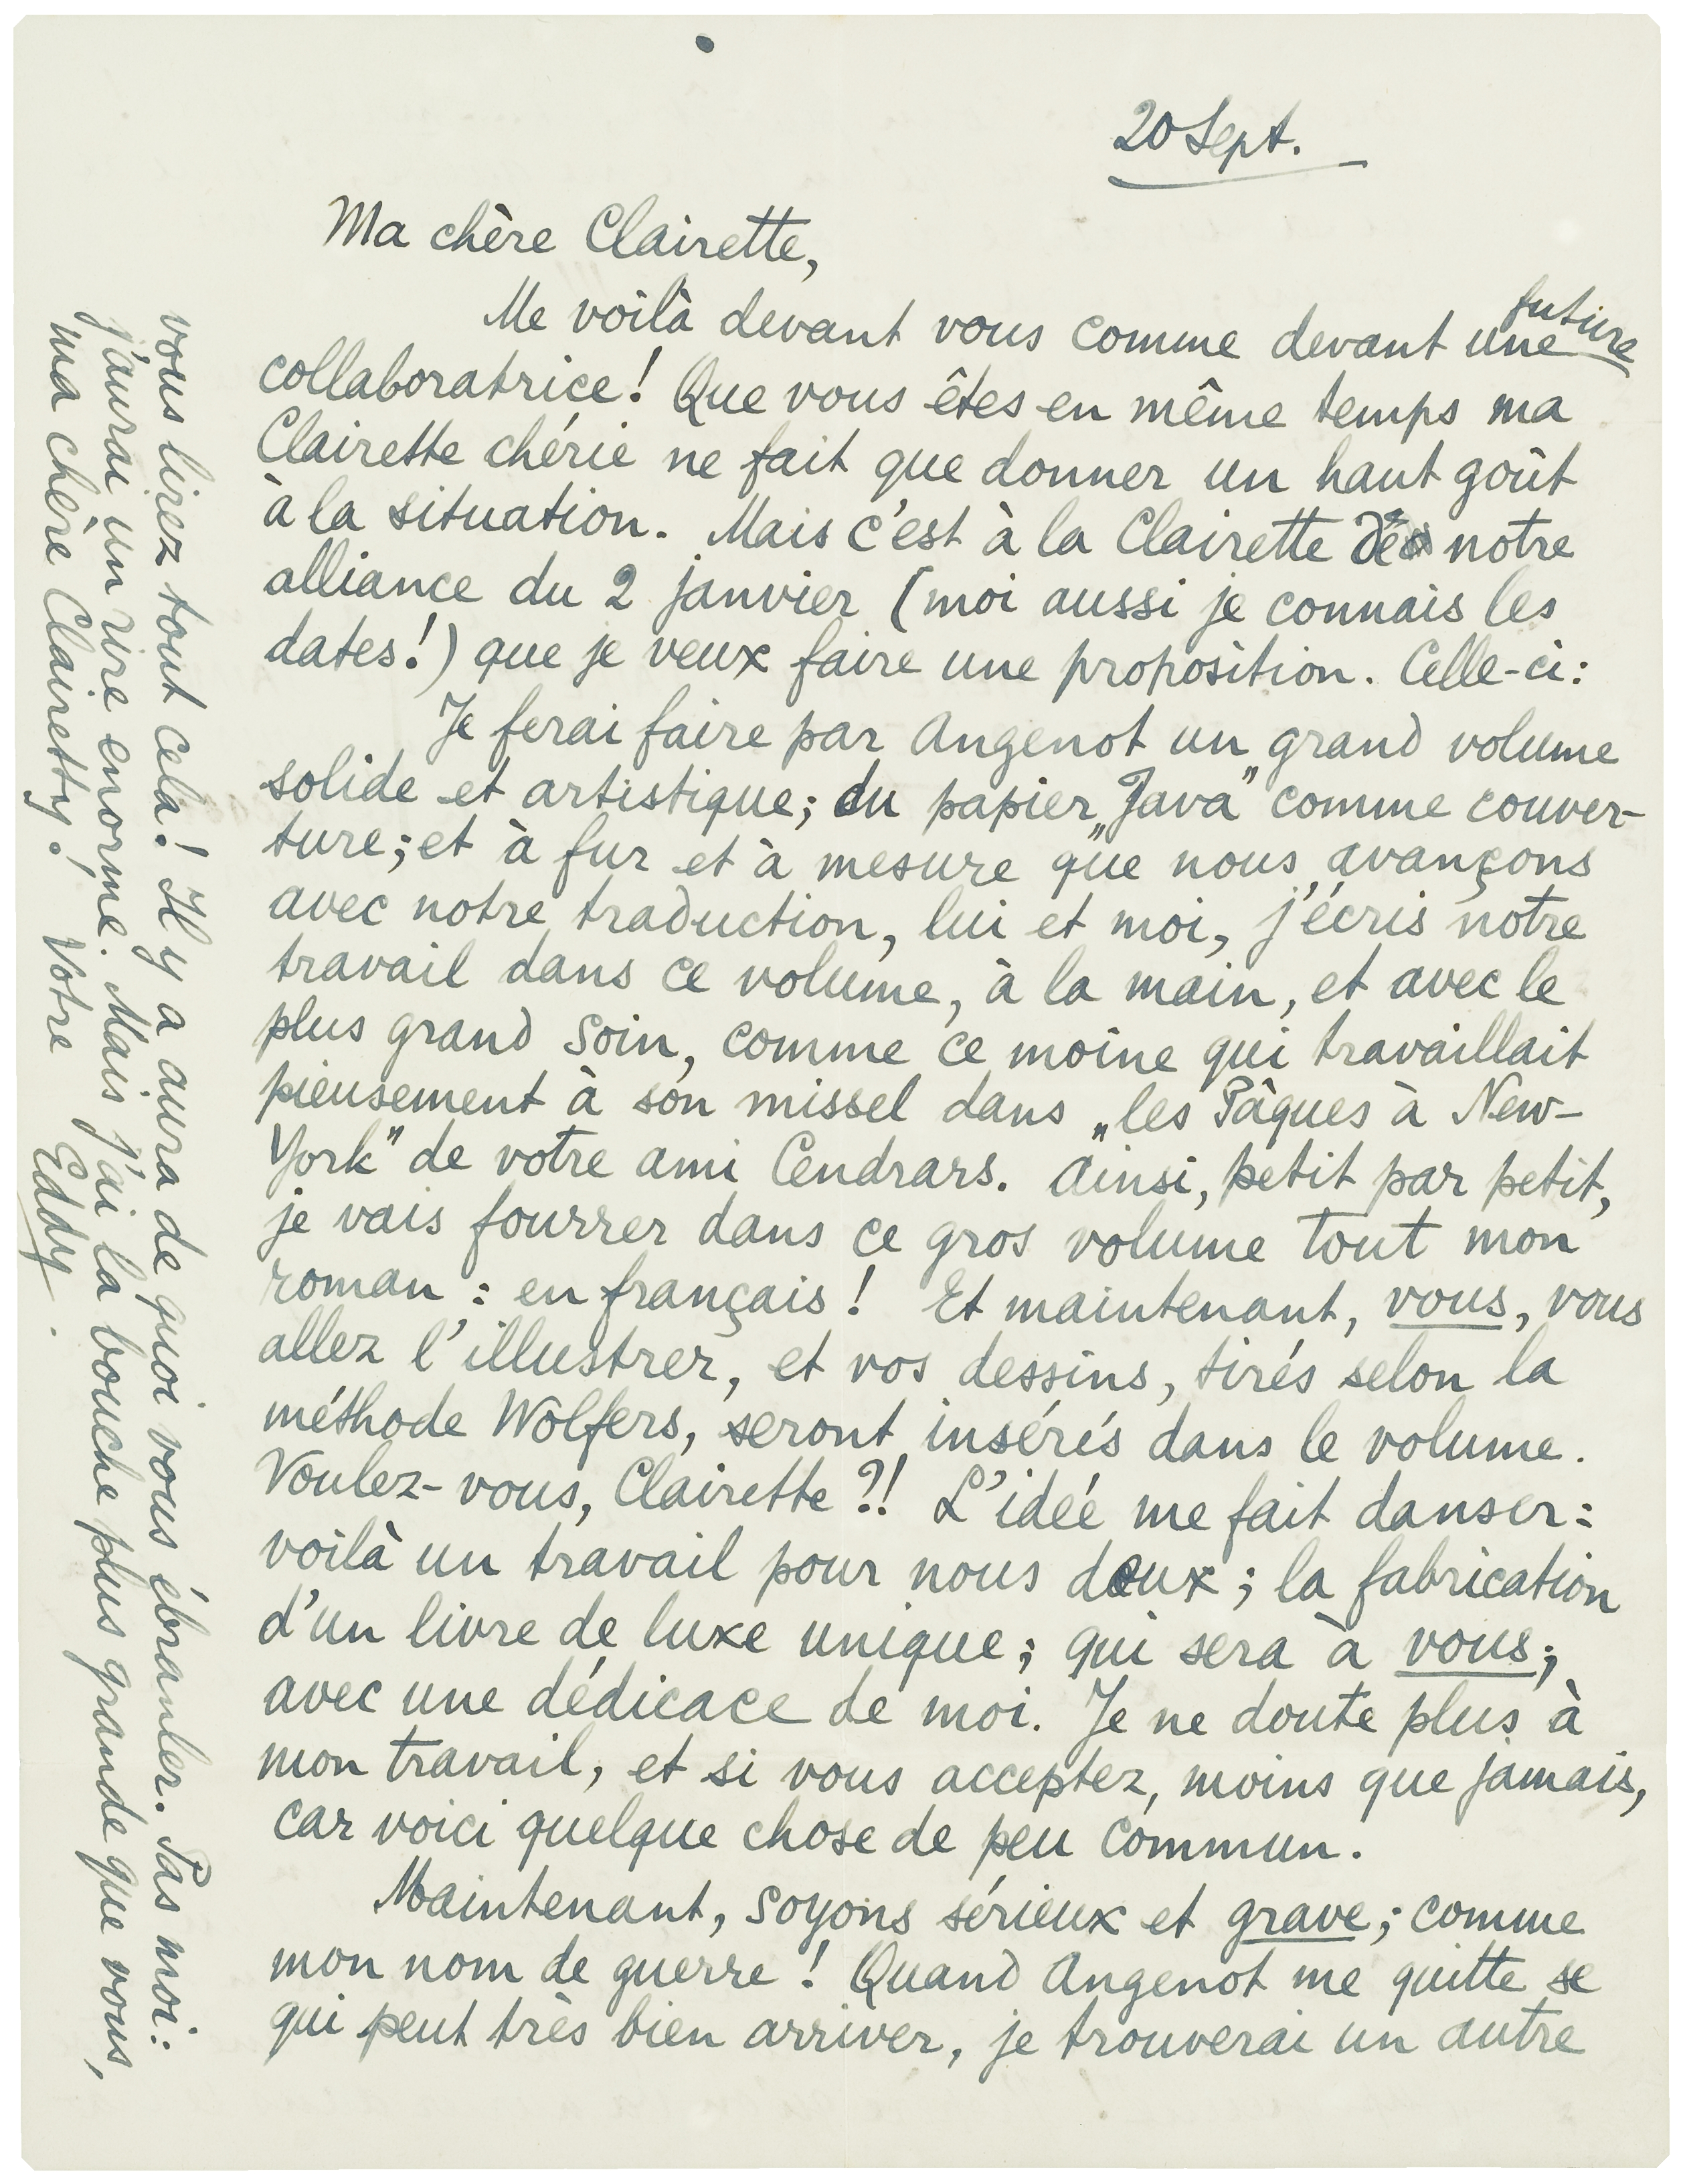 20 Sept.
Ma chère Clairette,
Me voilà devant vous comme devant une future
collaboratrice! Que vous êtes en même temps ma
Clairette chérie ne fait que donner un haut goût
à la situation. Mais c'est à la Clairette de notre
alliance du 2 janvier (moi aussi je connais les
dates!) que je veux faire une proposition. Celle-ci:
Je ferai faire par Angenot un grand volume
solide et artistique; du papier „Java” comme couver-
ture; et à fur et à mesure que nous avançons
avec notre traduction, lui et moi, j'écris notre
travail dans ce volume, à la main, et avec le
plus grand soin, comme ce moine qui travaillait
pieusement à son missel dans „les Pâques à New-
York” de votre ami Cendrars. Ainsi, petit par petit,
je vais fourrer dans ce gros volume tout mon
roman: en français! Et maintenant, vous, vous
allez l'illustrer, et vos dessins, tirés selon la
méthode Wolfers, seront insérés dans le volume.
Voulez-vous, Clairette?! L'ideé me fait danser:
voilà un travail pour nous deux; la fabrication
d'un livre de luxe unique; qui sera à vous;
avec une dédicace de moi. Je ne doute plus à
mon travail, et si vous acceptez, moins que jamais,
car voici quelque chose de peu commun.
Maintenant, soyons sérieux et grave; comme
mon nom de guerre! Quand Angenot me quitte se
qui peut très bien arriver, je trouverai un autre
vous lirez tout cela! Il y a aura de quoi vous ébranler. Pas moi:
j'aurai un rire enorme. Mais j'ai la bouche plus grande que vous,
ma chère Clairetty. Votre Eddy.